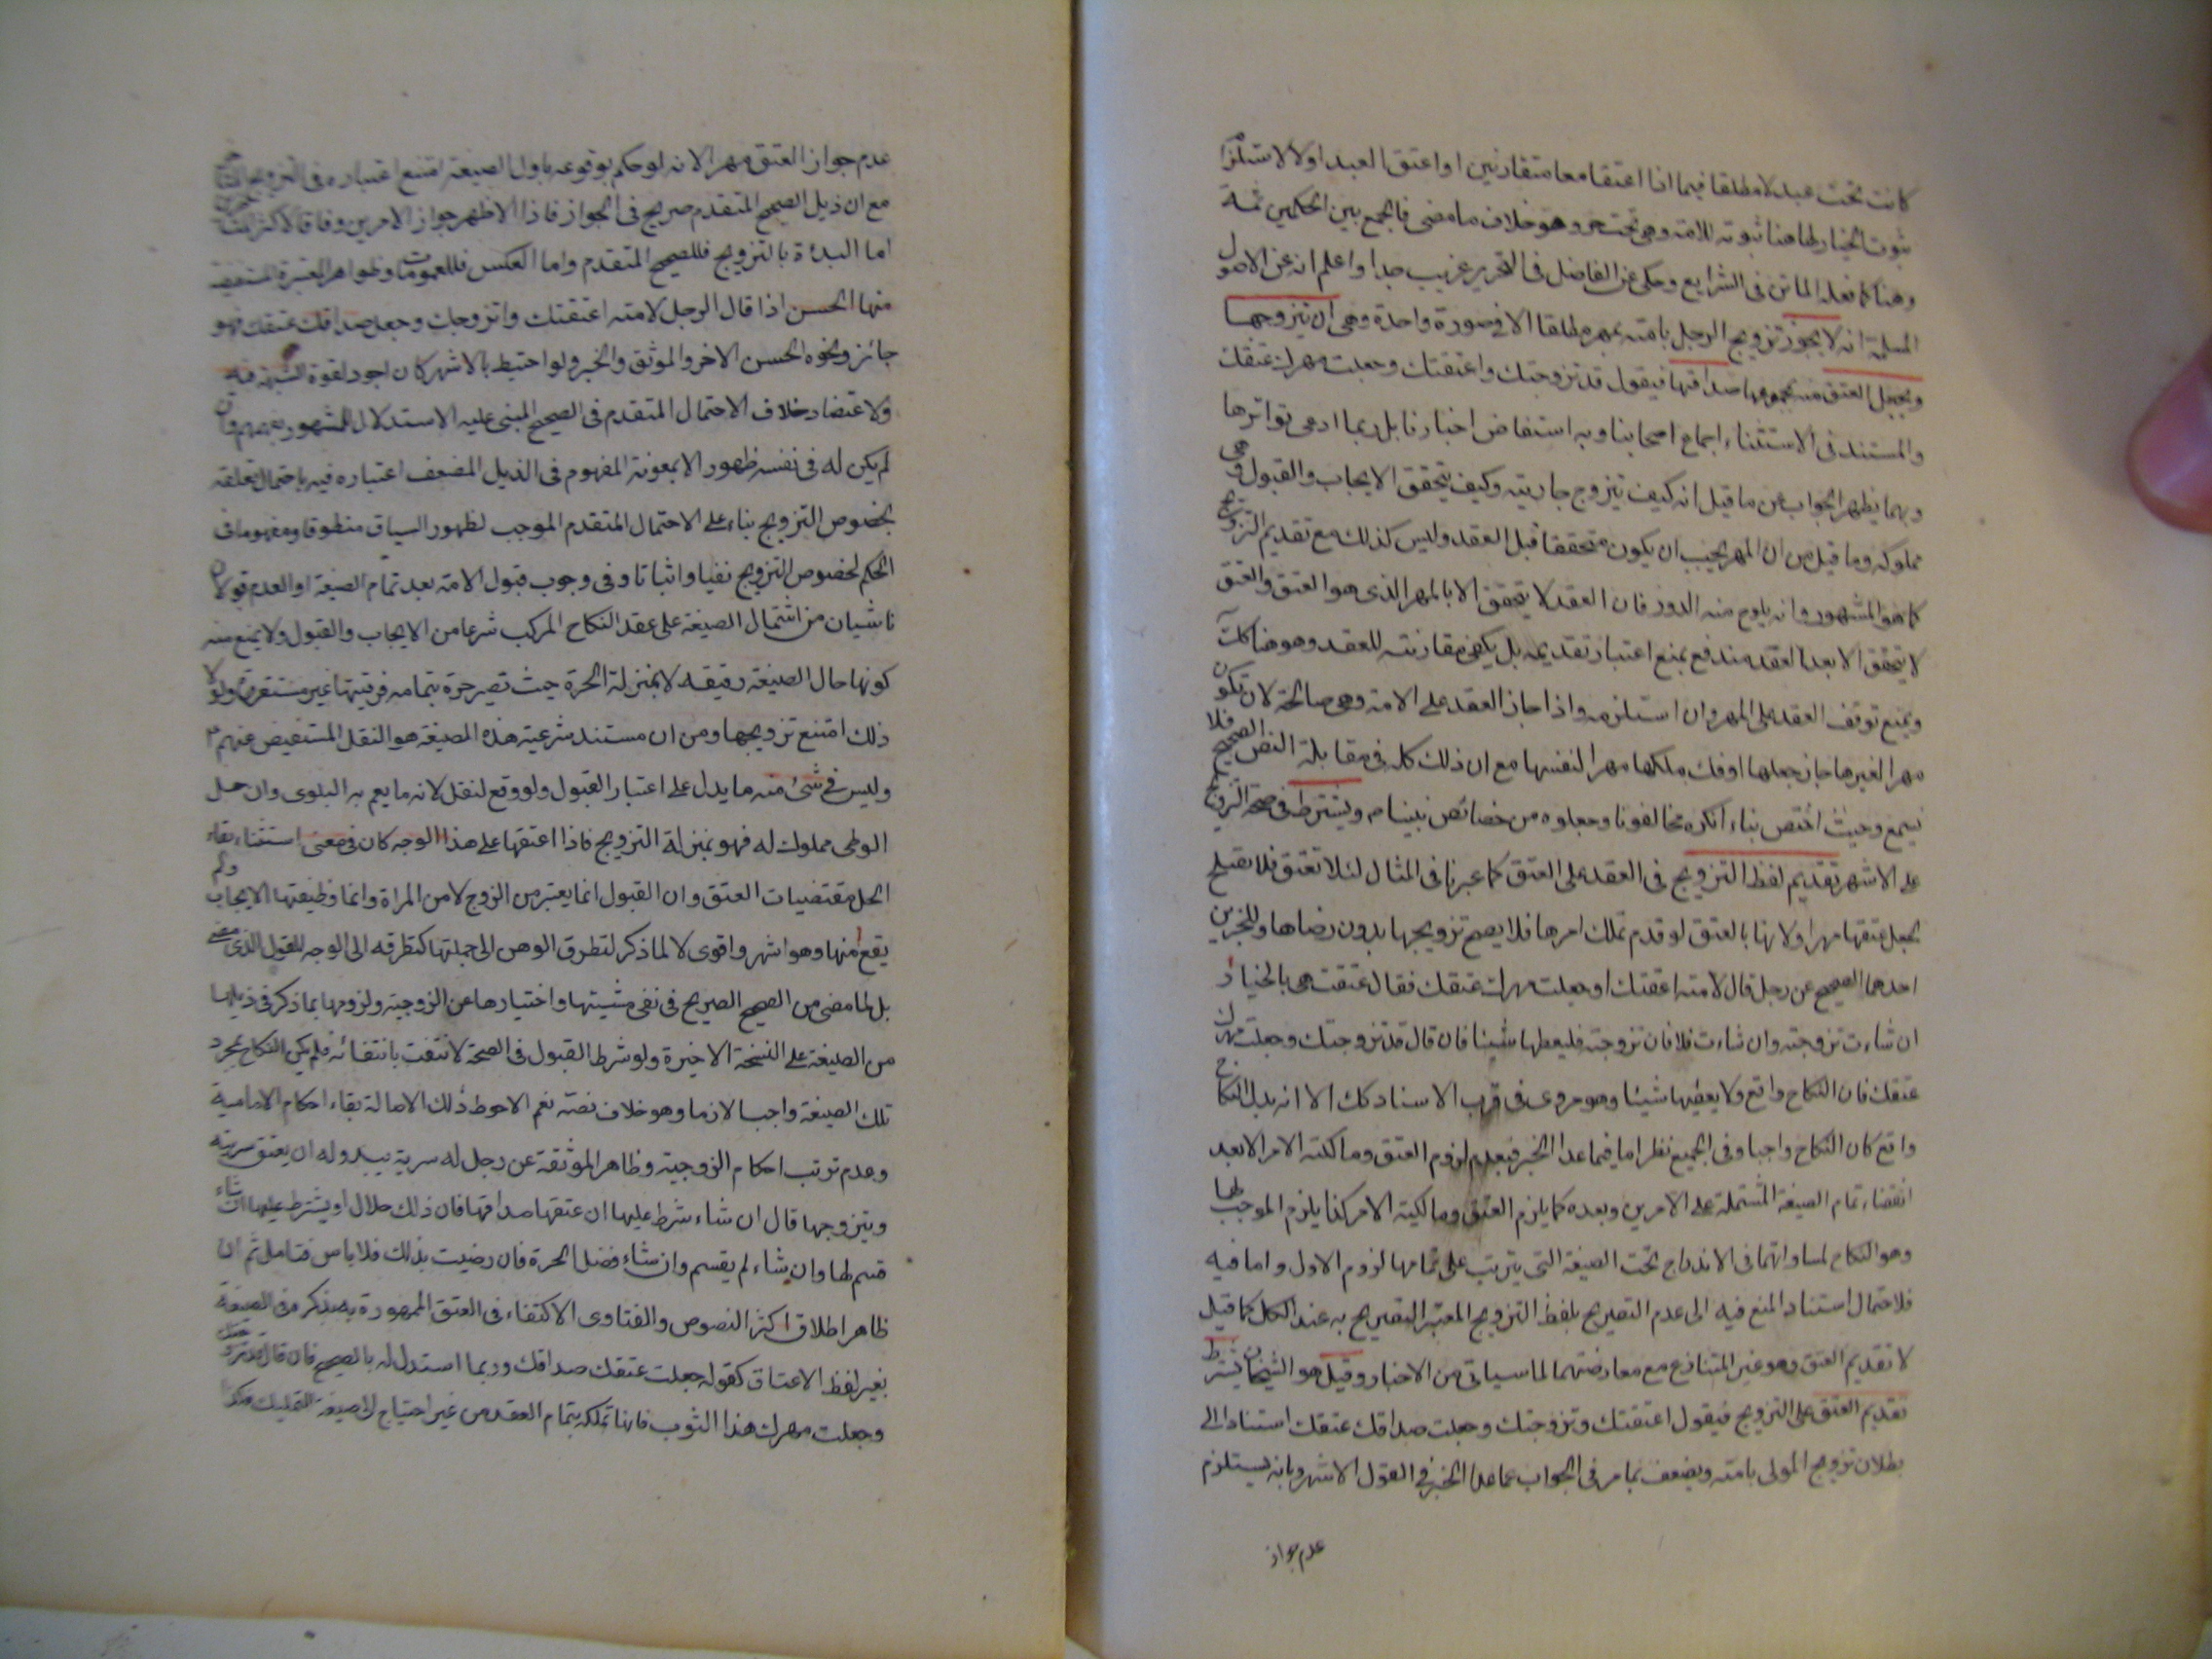 كانت تحت عبد لا مطلقا فيما اذا اعتقا معا متقارنين او اعتق العبد اولا لاستلزام
ثبوت الخيار لها هنا ثبوته للامة وهي تحت حر وهو خلاف ما مضى فالجمع بين الحكمين ثمة
وهنا كما فعله الماتن في الشرايع وحكى عن الفاضل في التحرير غريب جدا واعلم انه عن الاصول
المسلمة انه لا يجوز تزويج الرجل بامته بمهر مطلقا الا في صورة واحدة وهي ان يتزوجها
ويجعل العتق منه لها صداقها فيقول قد تزوجتك واعتقتك وجعلت مهرك عتقك
والمستند في الاستثناء اجماع اصحابنا وبه استفاض اخبارنا بل ربما ادعى تواترها
وبهما يظهر الجواب عن ما قيل انه كيف يتزوج جاريته وكيف يتحقق الايجاب والقبول وهي
مملوكه وما قيل من ان المهر يجب ان يكون متحققا قبل العقد وليس كذلك مع تقديم التزويج
كما هو المشهور وانه يلوح منه الدور فان العقد لا يتحقق الا بالمهر الذي هو العتق والعتق
لا يتحقق الا بعد العقد مندفع بمنع اعتبار تقديمه بل يكفي مقارنته للعقد وهو هنا كك
ويمنع توقف العقد على المهر وان استلزمه واذا جاز العقد على الامة وهي صالحة لان تكون
مهرا لغيرها جاز جعلها او فك ملكها مهرا لنفسها مع ان ذلك كله في مقابلة النص الصحيح فلا
يسمع وحيث اختص بناء انكره مخالفونا وجعلوه من خصائص نبينا ص ويشترط في صحة التزويج
على الاشهر تقديم لفظ التزويج في العقد على العتق كما عبرنا في المثال لئلا تعتق فلا يصلح
لجعل عتقها مهرا ولانها بالعتق لو قدم تملك امرها فلا يصح تزويجها بدون رضاها وللخبرين
احدهما الصحيح عن رجل قال لامته اعتقتك وجعلت مهرك عتقك فقال عتقت هي بالخيار
ان شاءت تزوجته وان شاءت فلا فان تزوجته فليعطها شيئا فان قال قد تزوجتك وجعلت مهرك
عتقك فان النكاح واقع ولا يعطيها شيئا وهو مروي في قرب الاسناد كك الا انه بدل النكاح
واقع كان النكاح واجبا وفي الجميع نظر اما فيما عدا الخبر فبعدم لزوم العتق ومالكية الامر الا بعد
انقضاء تمام الصيغة المشتملة على الامرين وبعده كما يلزم العتق ومالكية الامر كذا يلزم الموجب لها
وهو النكاح لمساواتهما في الاندراج تحت الصيغة التي يترتب على تمامها لزوم الاول واما فيه
فلاحتمال استناد المنع فيه الى عدم التصريح بلفظ التزويج المعتبر التصريح به عند الكل كما قيل
لا تقديم العتق وهو غير المتنازع مع معارضتهما لما سياتي من الاخبار وقيل هو الشيخان يشترط
تقديم العتق على التزويج فيقول اعتقتك وتزوجتك وجعلت صداقك عتقك استنادا الى
بطلان تزويج المولى بامته ويضعف بما مر في الجواب عما عدا الخبر في القول الاشهر وبانه يستلزم
عدم جواز
عدم جواز العتق مهرا لانه لو حكم بوقوعه باول الصيغة امتنع اعتباره في التزويج
مع ان ذيل الصحيح المتقدم صريح في الجواز فاذا الاظهر جواز الامرين وفاقا لاكثر
اما البدئة بالتزويج فللصحيح المتقدم واما العكس فللعمومات وظواهر المعتبرة المستفيضة
منها الحسن اذا قال الرجل لامته اعتقتك واتزوجك وجعل صداقك عتقك فهو
جائز ونحوه الحسن الاخر والموثق والخبر ولو احتيط بالاشهر كان اجود لقوة الشبهة فيه
ولاعتضاد خلاف الاحتمال المتقدم في الصحيح المبنى عليه الاستدلال للمشهور بفهمهم وان
لم يكن له في نفسه ظهور الا بمعونة المفهوم في الذيل المضعف اعتباره فيه باحتمال تعلقه
بخصوص التزويج بناء على الاحتمال المتقدم الموجب لظهور السياق منطوقا ومفهوما في
الحكم لخصوص التزويج نفيا واثباتا وفي وجوب قبول الامة بعد تمام الصيغة او العدم قولان
ناشيان من اشتمال الصيغة على عقد النكاح المركب شرعا من الايجاب والقبول ولا يمنع منه
كونها حال الصيغة رقيقه لانها بمنزلة الحرة حيث تصير حرة بتمامه فرقيتها غير مستقرة ولولا
ذلك امتنع تزويجها ومن ان مستند شرعية هذه الصيغة هو النقل المستفيض عنهم ع
وليس في شئ منه ما يدل على اعتبار القبول ولو وقع لنقل لانه ما يعم به البلوى وان حل
الوطى مملوك له فهو بمنزلة التزويج فاذا اعتقها على هذا الوجه كان في معنى استثناء بقاء
الحل من مقتضيات العتق وان القبول انما يعتبر من الزوج لا من المراة وانما وظيفتها الايجاب ولم
يقع منها وهو اشهر واقوى لا لما ذكر لتطرق الوهن الى جملتها كتطرقه الى الوجه للقول الذي مضى
بل لما مضى من الصحيح الصريح في نفي مشيتها واختيارها عن الزوجية ولزومها بما ذكر في ذيلها
من الصيغة على النسخة الاخيرة ولو شرط القبول في الصحة لانتفت بانتفائه فلم يكن النكاح بمجرد
تلك الصيغة واجبا لازما وهو خلاف نصه نعم الاحوط ذلك لاصالة بقاء احكام الامامية
وعدم ترتب احكام الزوجية وظاهر الموثقة عن رجل له سرية يبدو له ان يعتق سريته
ويتزوجها قال ان شاء شرط عليها ان عتقها صداقها فان ذلك حلال او يشترط عليها ان شاء
قسم لها وان شاء لم يقسم وان شاء فضل الحرة فان رضيت بذلك فلا باس فتامل ثم ان
ظاهر اطلاق اكثر النصوص والفتاوى الاكتفاء في العتق الممهورة به بذكره في الصيغة
بغير لفظ الاعتاق كقوله جعلت عتقك صداقك وربما استدل له بالصحيح فان قال قد تزوجتك
وجعلت مهرك هذا الثوب فانها تملكه بتمام العقد من غير احتياج الى صيغة التمليك فكذا